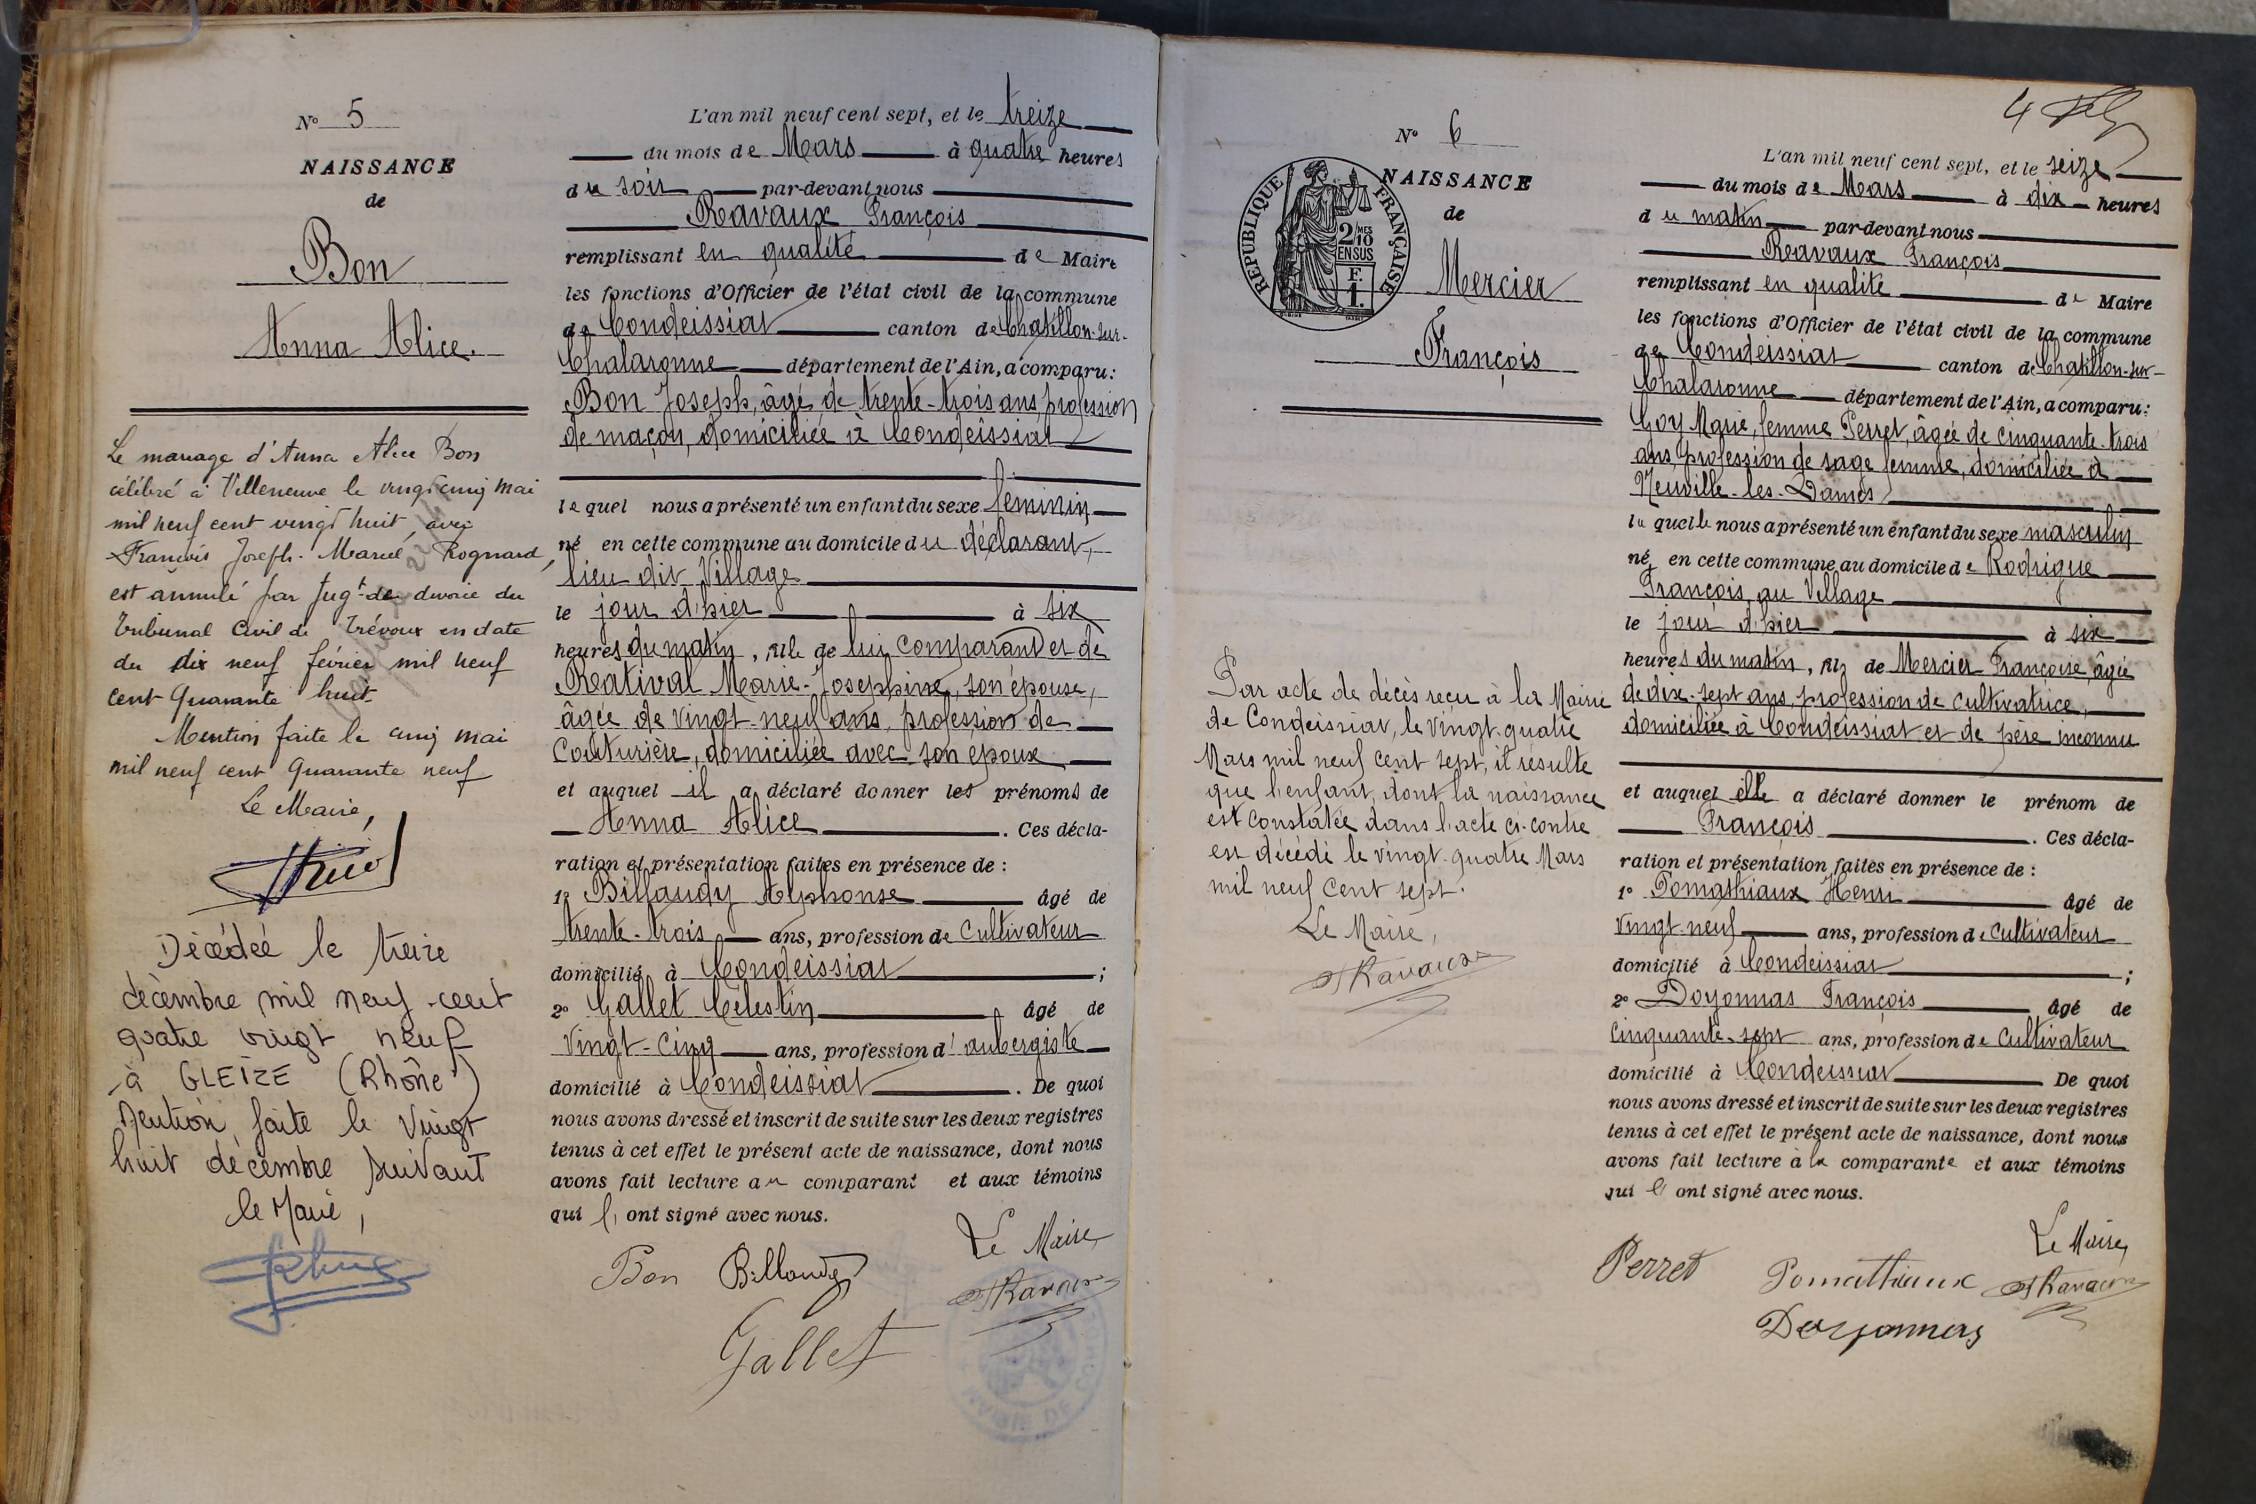 N° 5
NAISSANCE
de
Bon
Anna Alice.
Le mariage d'Anna Alice Bon
célébré à Villeneuve le vingt cinq mai
mil neuf cent vingt huit, avec
François Joseph-Marcel Rognard,
est annulé par Jugt de divorce du
Tribunal Civil de Trévoux en date
du dix neuf février mil neuf
cent Quarante huit
Mention faite le cinq mai
mil neuf cent Quarante neuf
Le Maire,
Décédée le treize
décembre mil neuf-cent
quatre vingt neuf
à GLEIZE (Rhône)
Mention faite le Vingt
huit décembre suivant
le Maire,
L'an mil neuf cent sept, et le treize
du mois de Mars à quatre heures
du soir par-devant nous
Ravaux François
remplissant en qualité de Maire
les fonctions d'Officier de l'état civil de la commune
de Condeissiat canton de Chatillon-sur-
Chalaronne département de l'Ain, a comparu:
Bon Joseph, âgé de trente-trois ans, profession
de maçon, domiciliée à Condeissiat
le quel nous a présenté un enfant du sexe féminin
né en cette commune au domicile du déclarant,
lieu dit Village
le jour d'hier à six
heures du matin, fille de lui comparant et de
Ratival Marie-Josephine, son épouse,
âgée de vingt-neuf ans, profession de
Couturière, domiciliée avec son époux
et auquel il a déclaré donner les prénoms de
Anna Alice. Ces décla-
ration et présentation faites en présence de :
1° Billaudy Alphonse âgé de
trente-trois ans, profession de Cultivateur
domicilié à Condeissiat ;
2° Gallet Célestin âgé de
Vingt-cinq ans, profession d'aubergiste
domicilié à Condeissiat. De quoi
nous avons dressé et inscrit de suite sur les deux registres
tenus à cet effet le présent acte de naissance, dont nous
avons fait lecture au comparant et aux témoins
qui l'ont signé avec nous.
Le Maire,
Bon Billaudy FRavaux
Gallet
MAIRIE DE COND
4
N° 6
NAISSANCE
de
RÉPUBLIQUE FRANÇAISE
2/10 MES
EN SUS
F.
1.
Mercier
François
Par acte de décès reçu à la Mairie
de Condeissiat, le vingt-quatre
Mars mil neuf cent sept, il résulte
que l'enfant dont la naissance
est constatée dans l'acte ci-contre
est décédé le vingt-quatre Mars
mil neuf cent sept.
Le Maire,
FRavaux
L'an mil neuf cent sept, et le seize
du mois de Mars à dix heures
du matin par-devant nous
Ravaux François
remplissant en qualité de Maire
les fonctions d'Officier de l'état civil de la commune
de Condeissiat canton de Chatillon-sur-
Chalaronne département de l'Ain, a comparu:
Goy Marie, femme Perret, âgée de cinquante-trois
ans, profession de sage femme, domiciliée à
Neuville-les-Dames
la quelle nous a présenté un enfant du sexe masculin
né en cette commune au domicile de Rodrigue
François, au Village
le jour d'hier à six
heures du matin, fils de Mercier Françoise, âgée
de dix-sept ans, profession de cultivatrice,
domiciliée à Condeissiat et de père inconnu
et auquel elle a déclaré donner le prénom de
François. Ces décla-
ration et présentation faites en présence de :
1° Pomathiaux Henri âgé de
Vingt-neuf ans, profession de Cultivateur
domicilié à Condeissiat ;
2° Doyonnas François âgé de
Cinquante-sept ans, profession de Cultivateur
domicilié à Condeissiat De quoi
nous avons dressé et inscrit de suite sur les deux registres
tenus à cet effet le présent acte de naissance, dont nous
avons fait lecture à la comparante et aux témoins
qui l'ont signé avec nous.
Le Maire,
Perret Pomathiaux FRavaux
Doyonnas